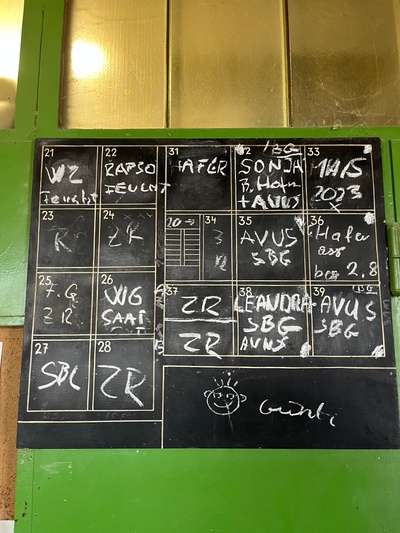 21
WZ
feucht
22
RAPSO
FEUCHT
31
HAFER
32
SBG
SONJA
B. Hofm
+ AVUS
33
MAIS
2023
23
R
24
ZR
20 →
34
3
12
35
AVUS
SBG
36
Hafer
ass
bez 2,8
25
Z R
26
WG
SAAT
37
ZR
ZR
38
LEANDRA
SBG
AVUS
39
SBG
+AVUS
SBG
27
SBG
28
ZR